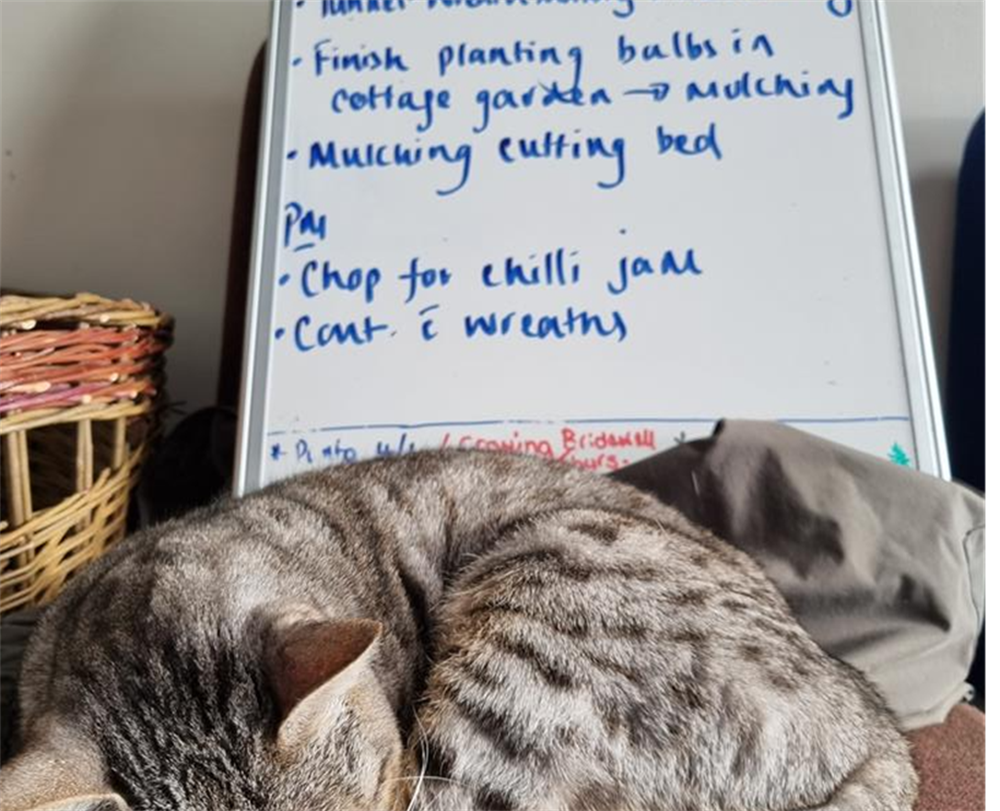 · Tunnel
· Finish planting bulbs in
cottage garden → Mulching
· Mulching cutting bed
PM
· Chop for chilli jam
· Cont. c̄ wreaths
* / Growing Bridewell